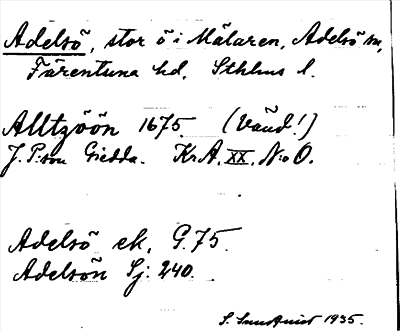 Adelsö, stor ö i Mälaren, Adelsö sn,
Färentuna hd, Sthlms l.
Alltzöön 1675. (Vänd!)
J. P:son Giedda. Kr.A. XX. N:o O.
Adelsö ek. G.75.
Adelsön Sj: 240.
S. Sundkvist 1935.